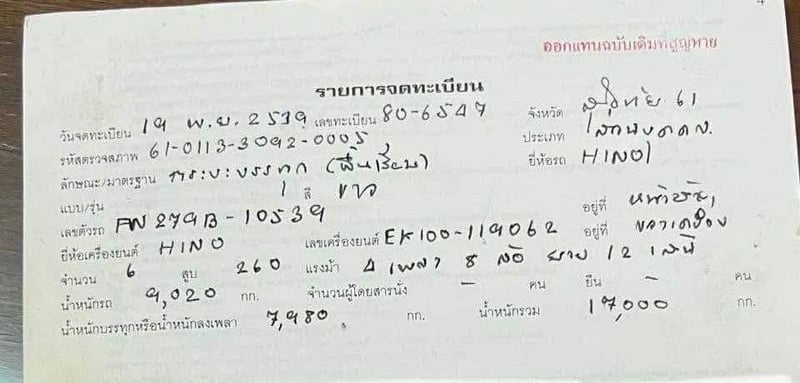 ออกแทนฉบับเดิมที่สูญหาย
รายการจดทะเบียน
วันจดทะเบียน 19 พ.ย. 2539 เลขทะเบียน 80-6547 จังหวัด สุโขทัย 61
รหัสตรวจสภาพ 61-0113-3092-0005 ประเภท
ลักษณะ/มาตรฐาน กระบะบรรทุก (พื้นเรียบ) ยี่ห้อรถ HINO
แบบ/รุ่น สี ขาว
เลขตัวรถ FN279B-10539 อยู่ที่
ยี่ห้อเครื่องยนต์ HINO เลขเครื่องยนต์ EK100-119062 อยู่ที่
จำนวน 6 สูบ 260 แรงม้า 4 เพลา 8 ล้อ ยาง 12 เส้น
น้ำหนักรถ 9,020 กก. จำนวนผู้โดยสารนั่ง - คน ยืน - คน
น้ำหนักบรรทุกหรือน้ำหนักลงเพลา 7,980 กก. น้ำหนักรวม 17,000 กก.